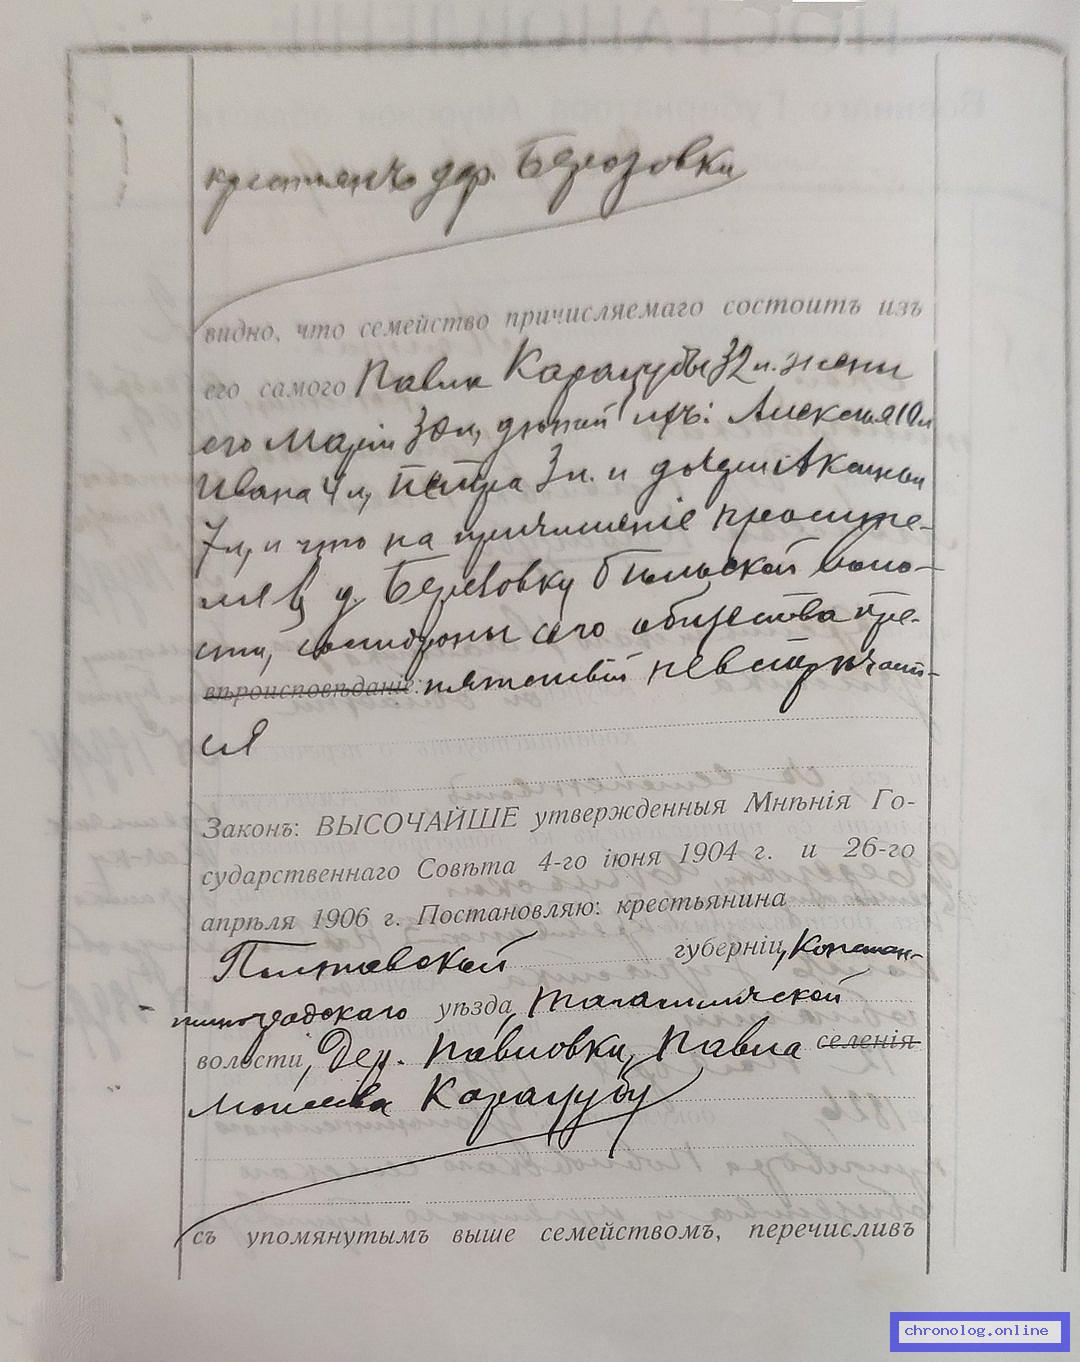 крестьянъ дер. Березовки
видно, что семейство причисляемаго состоитъ изъ
его самого Павла Карацубы 32 л. жены
его Маріи 30 л, дѣтей ихъ: Алексѣя 10 л
Ивана 4 л, Петра 3 л. и дочери
7 л, и что на причисленіе просите-
ля въ д. Березовку Бѣльской воло-
сти, со стороны сего общества пре-
вѣроисповѣданіе: пятствій не встрѣчает-
ся
Законъ: ВЫСОЧАЙШЕ утвержденныя Мнѣнія Го-
сударственнаго Совѣта 4-го іюня 1904 г. и 26-го
апрѣля 1906 г. Постановляю: крестьянина
Полтавской губерніи, Констан-
тиноградскаго уѣзда,
волости, Дер. Павловки, Павла селенія
Моисеева Карацубу
съ упомянутымъ выше семействомъ, перечисливъ
chronolog.online